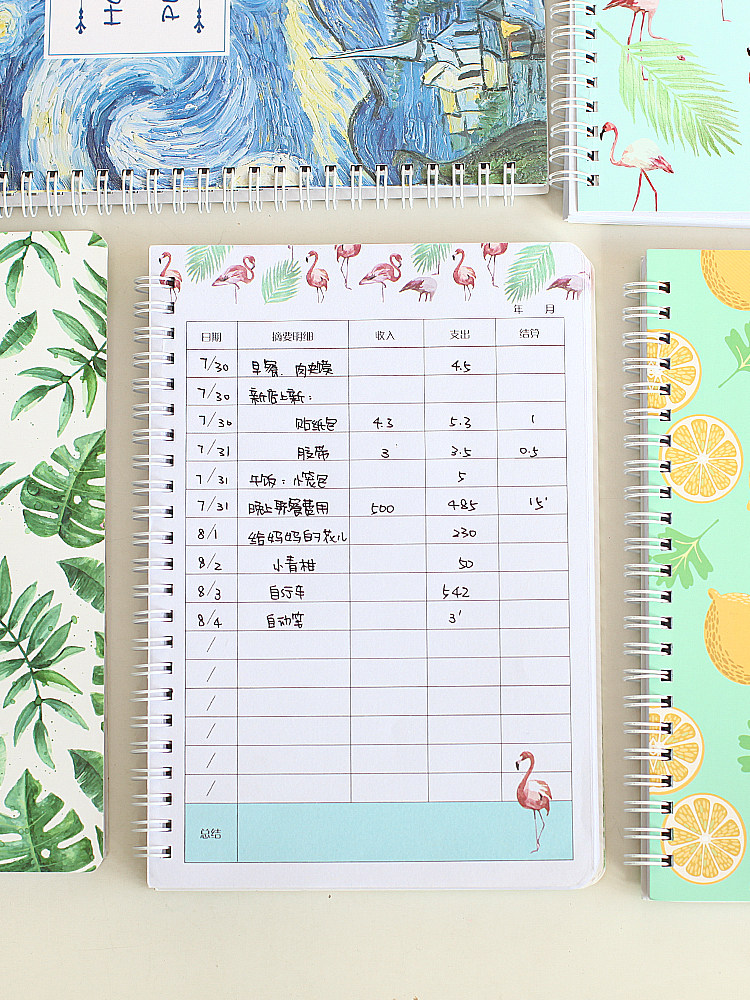 年 月
日期 摘要明细 收入 支出 结算
7/30 早餐、肉夹馍 4.5
7/30 新店上新:
7/30 贴纸包 4.3 5.3 1
7/31 胶带 3 3.5 0.5
7/31 午饭:小笼包 5
7/31 晚上聚餐费用 500 485 15
8/1 给妈妈的花儿 230
8/2 小青柑 50
8/3 自行车 542
8/4 自动笔 3
/
/
/
/
/
/
总结